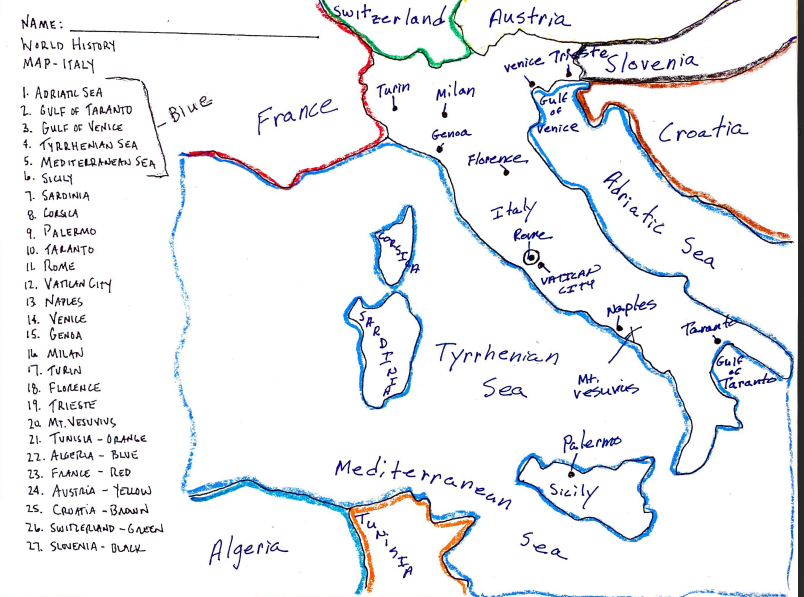 NAME:
WORLD HISTORY
MAP-ITALY
1. ADRIATIC SEA
2. GULF OF TARANTO
3. GULF OF VENICE
4. TYRRHENIAN SEA
5. MEDITERRANEAN SEA
6. SICILY
7. SARDINIA
8. CORSICA
9. PALERMO
10. TARANTO
11. ROME
12. VATICAN CITY
13 NAPLES
14. VENICE
15. GENOA
16. MILAN
17. TURIN
18. FLORENCE
19. TRIESTE
20. MT. VESUVIUS
21. TUNISIA - ORANGE
22. ALGERIA - BLUE
23. FRANCE - RED
24. AUSTRIA - YELLOW
25. CROATIA - BROWN
26. SWITZERLAND - GREEN
27. SLOVENIA - BLACK
- Blue
Switzerland
Austria
Slovenia
Venice
Trieste
Turin
Milan
Gulf
of
Venice
France
Croatia
Genoa
Florence
Adriatic Sea
Italy
Rome
VATICAN
CITY
CORSICA
SARDINIA
Naples
Taranto
Tyrrhenian
Sea
Mt.
Vesuvius
Gulf
of
Taranto
Palermo
Sicily
Mediterranean
Sea
Algeria
TUNISIA